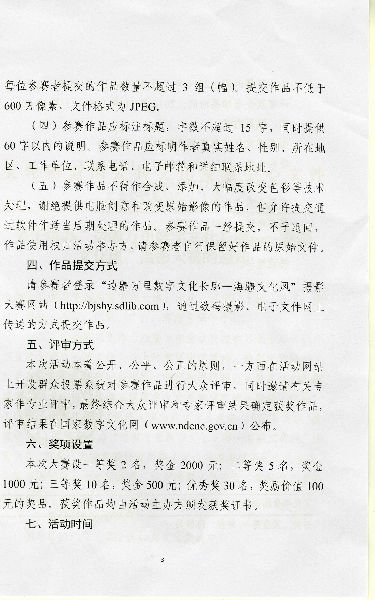 每位参赛者提交的作品数量不超过 3 组（幅），提交作品不低于
600 万像素，文件格式为 JPEG。
（四）参赛作品应标注标题，字数不超过 15 字，同时提供
60 字以内的说明。参赛作品应标明作者真实姓名、性别、所在地
区、工作单位、联系电话、电子邮箱和详细联系地址。
（五）参赛作品不得作合成、添加、大幅度改变色彩等技术
处理，谢绝提供电脑创意和改变原始影像的作品，但允许
软件作适当后期处理的作品。参赛作品一经提交，不予退回，
作品使用权归活动举办方，请参赛者自行保留好作品的原始文件。
四、作品提交方式
请参赛者登录“边疆万里数字文化长廊—海疆文化风”摄影
大赛网站（http://bjshy.sdlib.com），通过数码摄影、电子文件网上
传送的方式提交作品。
五、评审方式
本次活动本着公开、公平、公正的原则，一方面在活动网站
上开发群众投票系统对参赛作品进行大众评审，同时邀请有关专
家作专业评审，最终综合大众评审和专家评审结果确定获奖作品，
评审结果在国家数字文化网（www.ndcnc.gov.cn）公布。
六、奖项设置
本次大赛设一等奖 2 名，奖金 2000 元；二等奖 5 名，奖金
1000 元；三等奖 10 名，奖金 500 元；优秀奖 30 名，奖品价值 100
元的奖品。获奖作品均由活动主办方颁发获奖证书。
七、活动时间
3